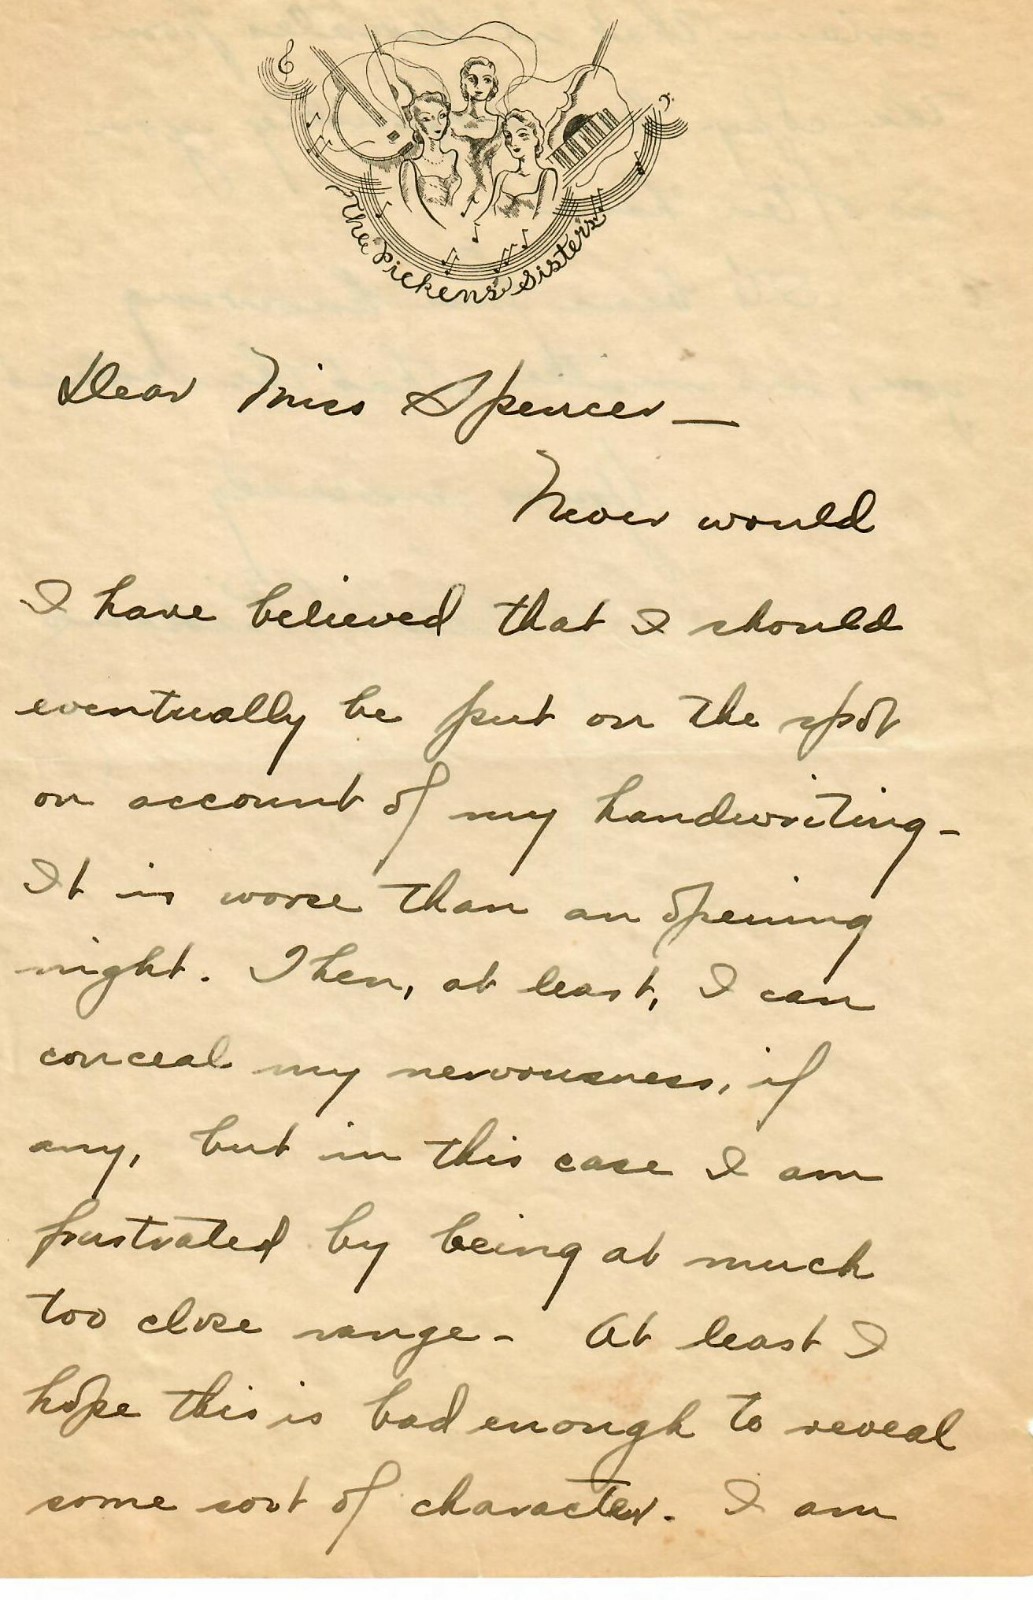 The Pickens Sisters
Dear Miss Spencer—
Never would
I have believed that I should
eventually be put on the spot
on account of my handwriting-
It is worse than an opening
night. Then, at least, I can
conceal my nervousness, if
any, but in this case I am
frustrated by being at much
too close range- At least I
hope this is bad enough to reveal
some sort of character. I am